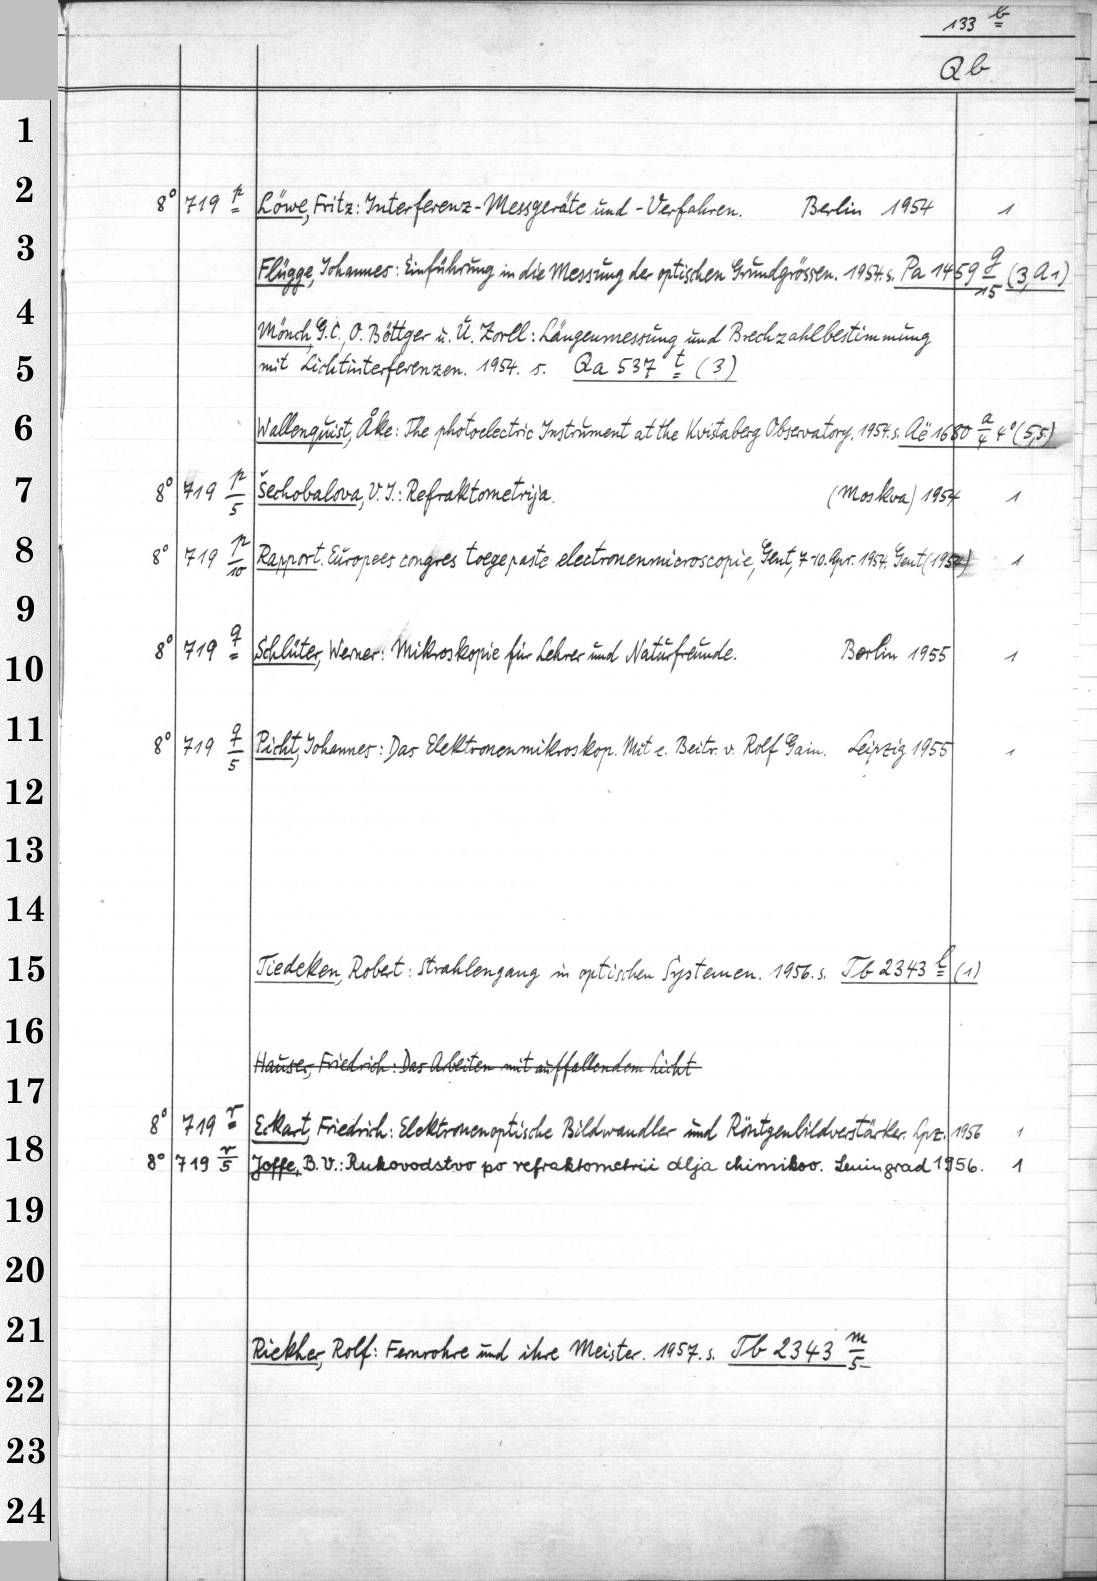 133 b
Qb
1
2
8° 719 p Löwe, Fritz: Interferenz-Messgeräte und -Verfahren. Berlin 1954 1
3
Flügge, Johannes: Einführung in die Messung der optischen Grundgrössen. 1954. s. Pa 1459 g/15 (3, A1)
4
Mönch, G.C., O. Böttger u. U. Zorll: Längenmessung und Brechzahlbestimmung
5
mit Lichtinterferenzen. 1954. s. Qa 537 t (3)
6
Wallenquist, Åke: The photoelectric Instrument at the Kvistaberg Observatory. 1954. s. Aë 1680 a/4 4° (5,5)
7
8° 719 p/5 Šechobalova, V. I.: Refraktometrija. (Moskva) 1954 1
8
8° 719 p/10 Rapport. Europees congres toegepaste electronenmicroscopie, Gent, 7-10. Apr. 1954. Gent (1954) 1
9
10
8° 719 q Schlüter, Werner: Mikroskopie für Lehrer und Naturfreunde. Berlin 1955 1
11
8° 719 q/5 Picht, Johannes: Das Elektronenmikroskop. Mit e. Beitr. v. Rolf Gain. Leipzig 1955 1
12
13
14
15
Tiedeken, Robert: Strahlengang in optischen Systemen. 1956. s. Tb 2343 l (1)
16
Hauser, Friedrich: Das Arbeiten mit auffallendem Licht
17
8° 719 r Eckart, Friedrich: Elektronenoptische Bildwandler und Röntgenbildverstärker. Lpz. 1956 1
18
8° 719 r/5 Joffe, B. V.: Rukovodstvo po refraktometrii dlja chimikov. Leningrad 1956. 1
19
20
21
Riekher, Rolf: Fernrohre und ihre Meister. 1957. s. Tb 2343 m/5
22
23
24